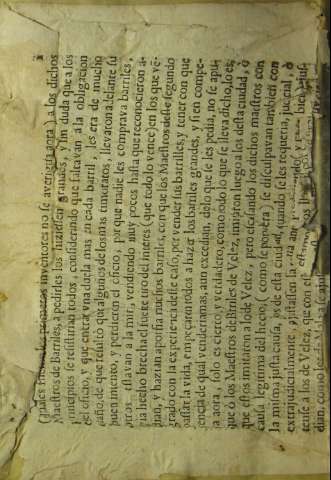 primeros inventores no se avendria aora) a los dichos
Maestros de Barriles, a pedirles los hiziessen grandes, y sin duda que a los
principios se resistirian todos, considerando que faltavan à la obligacion
del oficio, y que entrar una onza mas en cada barril, les era de mucho
daño, de que resultò que algunos de los mas timoratos, llevaron adelante su
buen intento, y perdieron el oficio, porque nadie les comprava barriles,
otros estavan a la mira, vendiendo muy pocos, hasta que reconocieron a-
via hecho brecha el fuerte tiro del interes (que todo lo vence) en los que ve-
dian, y hazian aporfia muchos barriles, con que los Maestros deste segundo
grado con la experiencia deste caso, por vender sus barriles, y tener con que
passar la vida, empeçaron todos a hazer los barriles grandes, y si en compe-
tencia de qual venderia mas, a mo excedian, dolo que se les pedia, no se apu-
ra aora, solo es cierto, y verdadero, como todo lo que se lleva dicho, lo es,
que ò los Maestros de Barriles de Velez, imitaron luego a los desta ciudad, ò
que estos imitaron a los de Velez, pero estando los dichos maestros con
causa legitima del hecho, (como se ponderà) se disculpavan tambien con
la misma justa causa, los de esta ciudad, quando se les requeria, judicial, ò
extrajudicialmente, y
los de Velez, que con el
dian, como los de Malaga